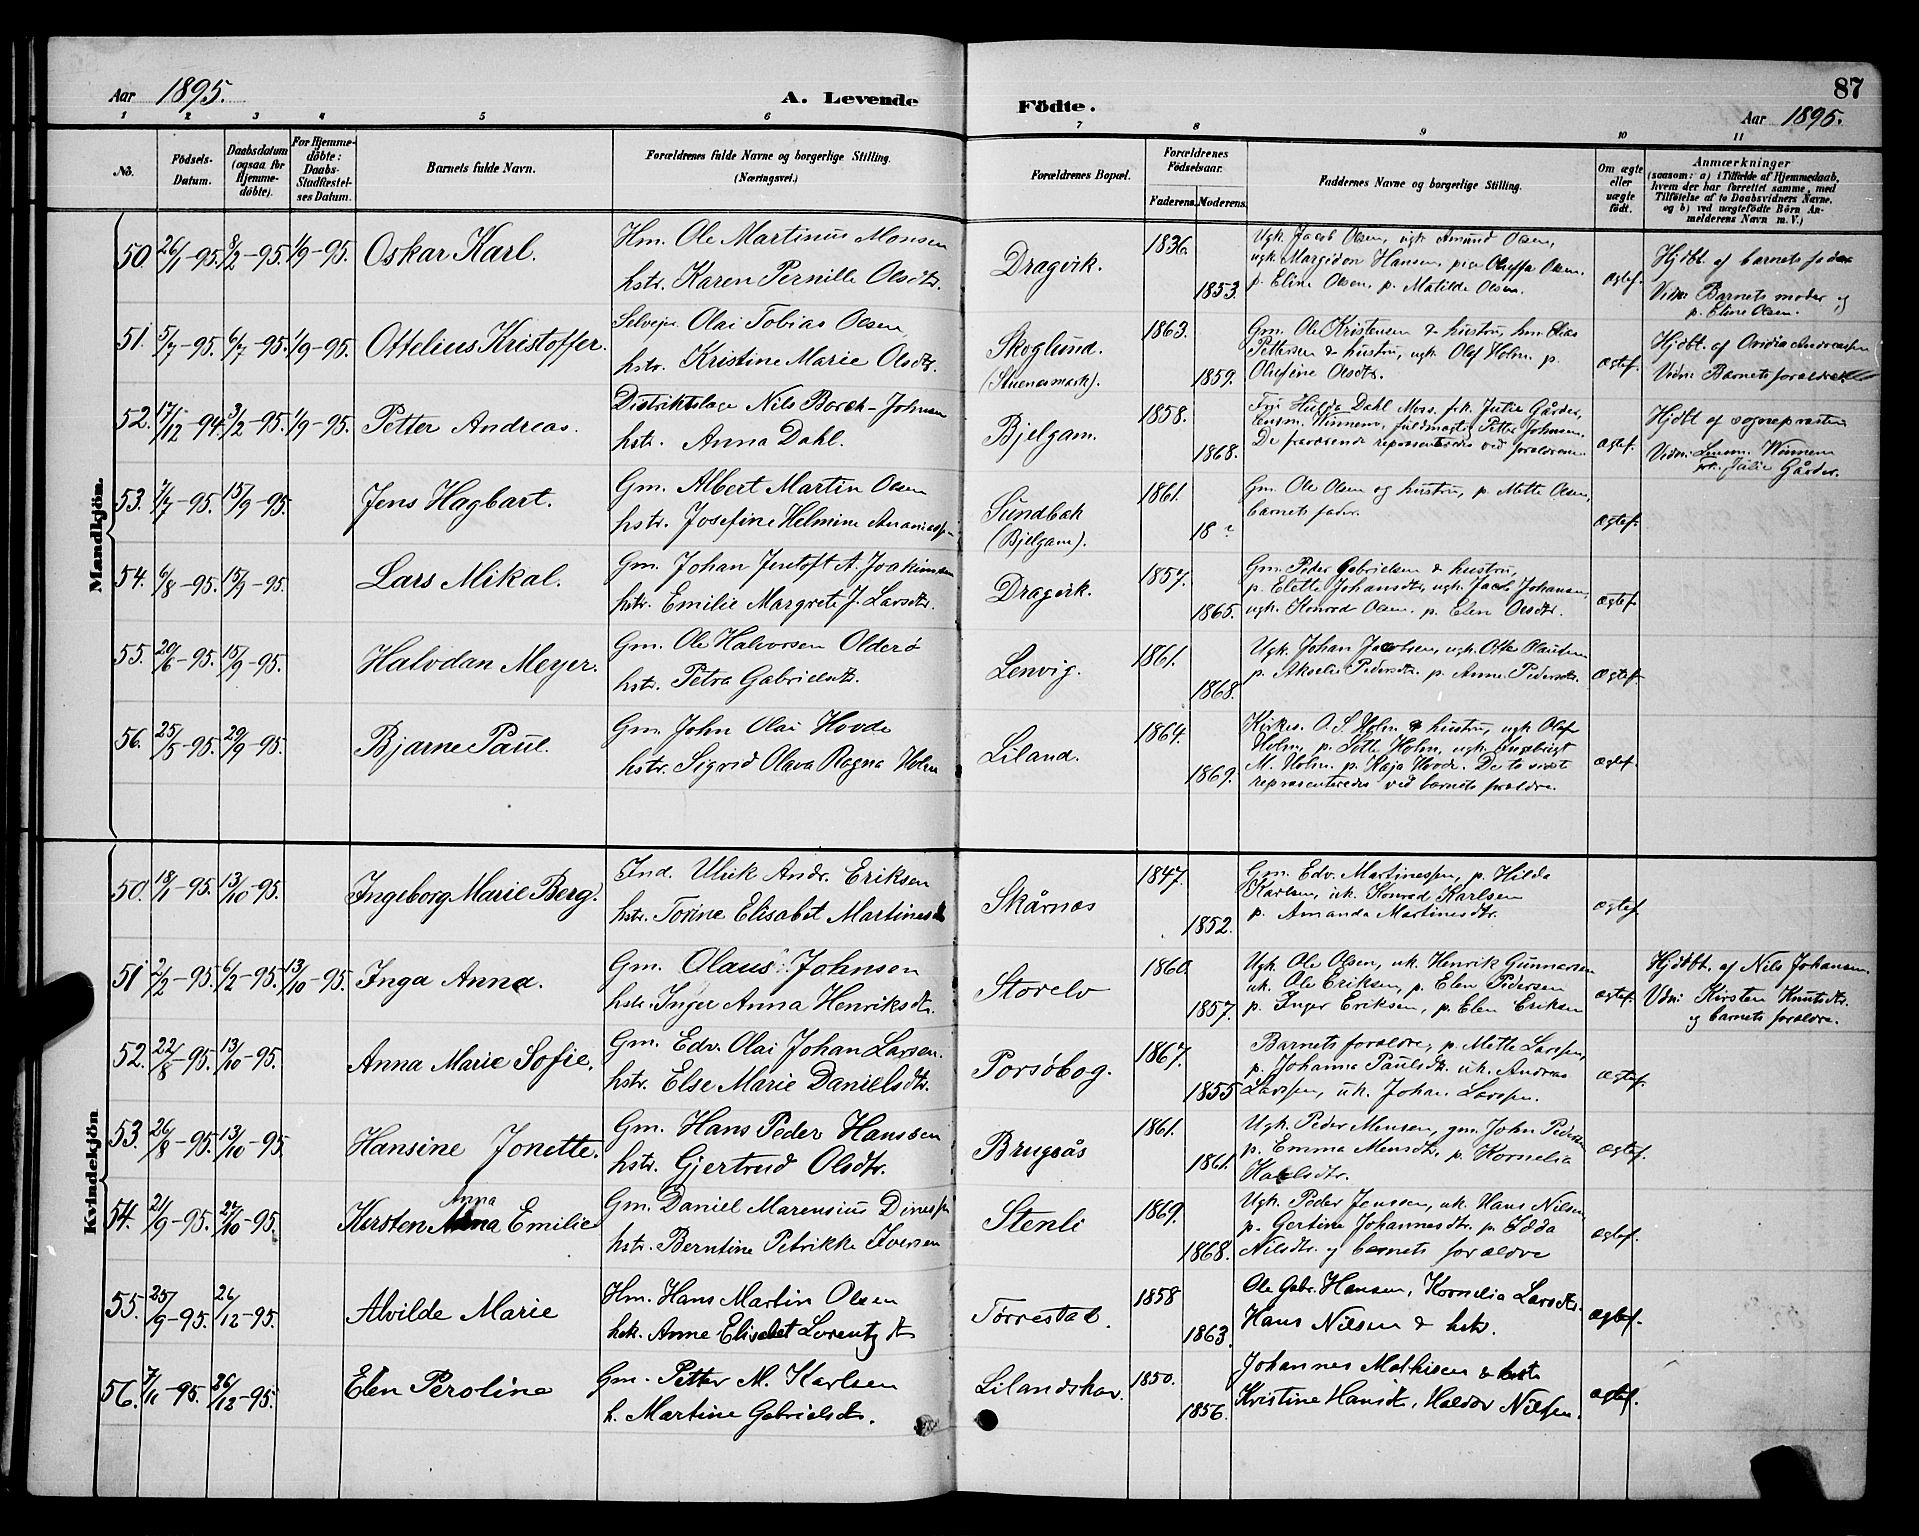 87
Aar 1895. A. Levende Födte. Aar 1895.
1 2 3 4 5 6 7 8 9 10 11
No. Födsels-Datum. Daabsdatum (ogsaa for Hjemmedöbte). For Hjemmedöbte: Daabs-Stadfæstelses Datum. Barnets fulde Navn. Forældrenes fulde Navne og borgerlige Stilling. (Næringsvei.) Forældrenes Bopæl. Forældrenes Födselsaar. Faderens. Moderens. Faddernes Navne og borgerlige Stilling. Om ægte eller uægte födt. Anmærkninger (saasom: a) i Tilfælde af Hjemmedaab, hvem der har forrettet samme, med Tilföielse af to Daabsvidners Navne, og b) ved uægtefödte Börn Anmelderens Navn m. V.)
Mandkjön.
50. 26/1-95. 8/2-95. 1/9-95. Oskar Karl. Hm. Ole Martinus Monsen Dragvik. 1836. Ugk. Jacob Olsen, ugk. Amund Olsen, ægtef. Hjdbt. af barnets fader
hstr. Karen Pernille Olsdtr. 1853. ugk. Margidon Hansen, Oleffa Olsen, Vidn: Barnets moder og
p. Eline Olsen, p. Matilde Olsen. p. Eline Olsen.
51. 5/7-95. 6/7-95. 1/9-95. Ottelius Kristoffer. Selveier Olai Tobias Olsen Skoglund. 1863. Gm. Ole Kristensen & hustru, hm. Elias ægtef. Hjdbt. af Ovidia Andreassen
hstr. Kristine Marie Olsdtr. 1859. Pettersen & hustru, ugk. Olaf Holm, p. Vidn: Barnets forældre.
Olufine Olsdtr.
52. 17/12-94. 3/2-95. 1/9-95. Petter Andreas. Distriktslæge Nils Borch-Johnsen Bjelgam. 1858. Hulda Dahl Moss, frk. Julie Gårder, ægtef. Hjdbt af sognepræsten
hstr. Anna Dahl. 1868. Lensm. Winnem, fuldmægtig Petter Johnsen. Vidn: Lensm. Winnem
De fraværende repræsenteredes ved forældrene frk. Julie Gårder.
53. 4/7-95. 15/9-95. Jens Hagbart. Gm. Albert Martin Olsen Sundbak 1861. Gm. Ole Olsen og hustru, p. Mette Olsen, ægtef.
hstr. Josefine Helmine (Bjelgam). 18? barnets fader.
54. 6/8-95. 15/9-95. Lars Mikal. Gm. Johan Jentoft A. Joakimsen Dragvik. 1857. Gm. Peder Gabrielsen & hustru, ægtef.
hstr. Emilie Margrete J. Larsdtr. 1865. p. Elette Johansdtr, ugk. Jacob Johansen,
ugk. Konrad Olsen. p. Elen Olsdtr.
55. 20/6-95. 15/9-95. Halvdan Meyer. Gm. Ole Halvorsen Olderö Lenvig. 1861. Ugk. Johan Jacobsen, ugk. Otte ægtef.
hstr. Petra Gabrielsdtr. 1868. p. Pedersdtr. p. Anne Pedersdtr.
56. 25/5-95. 29/9-95. Bjarne Paul. Gm. John Olai Hovde Liland. 1864. Kirkes. O. S. Holm & hustru, ugk. Olaf ægtef.
hstr. Sigrid Olava Ragna Holm 1869. Holm, p. Holm, ugk. Ingebrigt
M. Holm, p. Kaja Hovde. De to sidst
repræsenteredes ved barnets forældre.
Kvindekjön
50. 18/1-95. 13/10-95. Ingeborg Marie Berg. Ind. Ulrik Andr. Eriksen Skårnæs 1847. Gm. Edv. Martinessen, p. Hilda ægtef.
hstr. Torine Elisabet Martinesdtr 1852. Karlsen, uk. Konrad Karlsen
p. Amanda Martinesdtr.
51 2/2-95. 6/2-95. 13/10-95. Inga Anna. Gm. Olaus Johnsen Storelv 1860. Ugk. Ole Olsen, uk. Henrik Gunnarsen ægtef. Hjdbt. af Nils Johansen
hstr. Inger Anna Henriksdtr. 1857. uk. Ole Eriksen, p. Elen Pedersen Vdn: Kirsten Knutsdtr.
p. Inger Eriksen, p. Elen Eriksen og barnets forældre.
52. 22/8-95. 13/10-95. Anna Marie Sofie. Gm. Edv. Olai Johan Larsen. Porsöbog. 1867. Barnets forældre, p. Mette Larssen, ægtef.
hstr. Else Marie Danielsdtr. 1855 p. Johanna Paulsdtr. uk. Andreas
Larssen, uk. Johan Larssen.
53. 26/8-95. 13/10-95. Hansine Jonette. Gm. Hans Peder Hanssen Brugsås 1861. Ugk. Peder Mensen, gm. John Pedersen ægtef.
hstr. Gjertrud Olsdtr. 1861. p. Emma Mensdtr, p. Kornelia
Karlsdtr.
54. 21/9-95. 27/10-95. Kirsten Anna Emilie Gm. Daniel Marensius Dinessen Stenli 1869. Ugk. Peder Jenssen, uk. Hans Nilsen, ægtef.
hstr. Berntine Petrikke Iversen 1868. p. Gertine Johannesdtr. p. Edda
Nilsdtr. og barnets forældre
55. 25/9-95. 26/12-95. Alvilde Marie Hm. Hans Martin Olsen Törrestad. 1858 Ole Gabr. Hansen, Kornelia Larsdtr. ægtef.
hstr. Anne Elisebet Lorentzdtr 1863. Hans Nilsen & hstr.
56. 7/11-95. 26/12-95. Elen Peroline Gm. Petter M. Karlsen Lilandskar. 1850. Johannes Mathisen & hstr ægtef.
h. Martine Gabrielsdtr. 1856. Kristine Hansdtr, Haldor Nilsen.